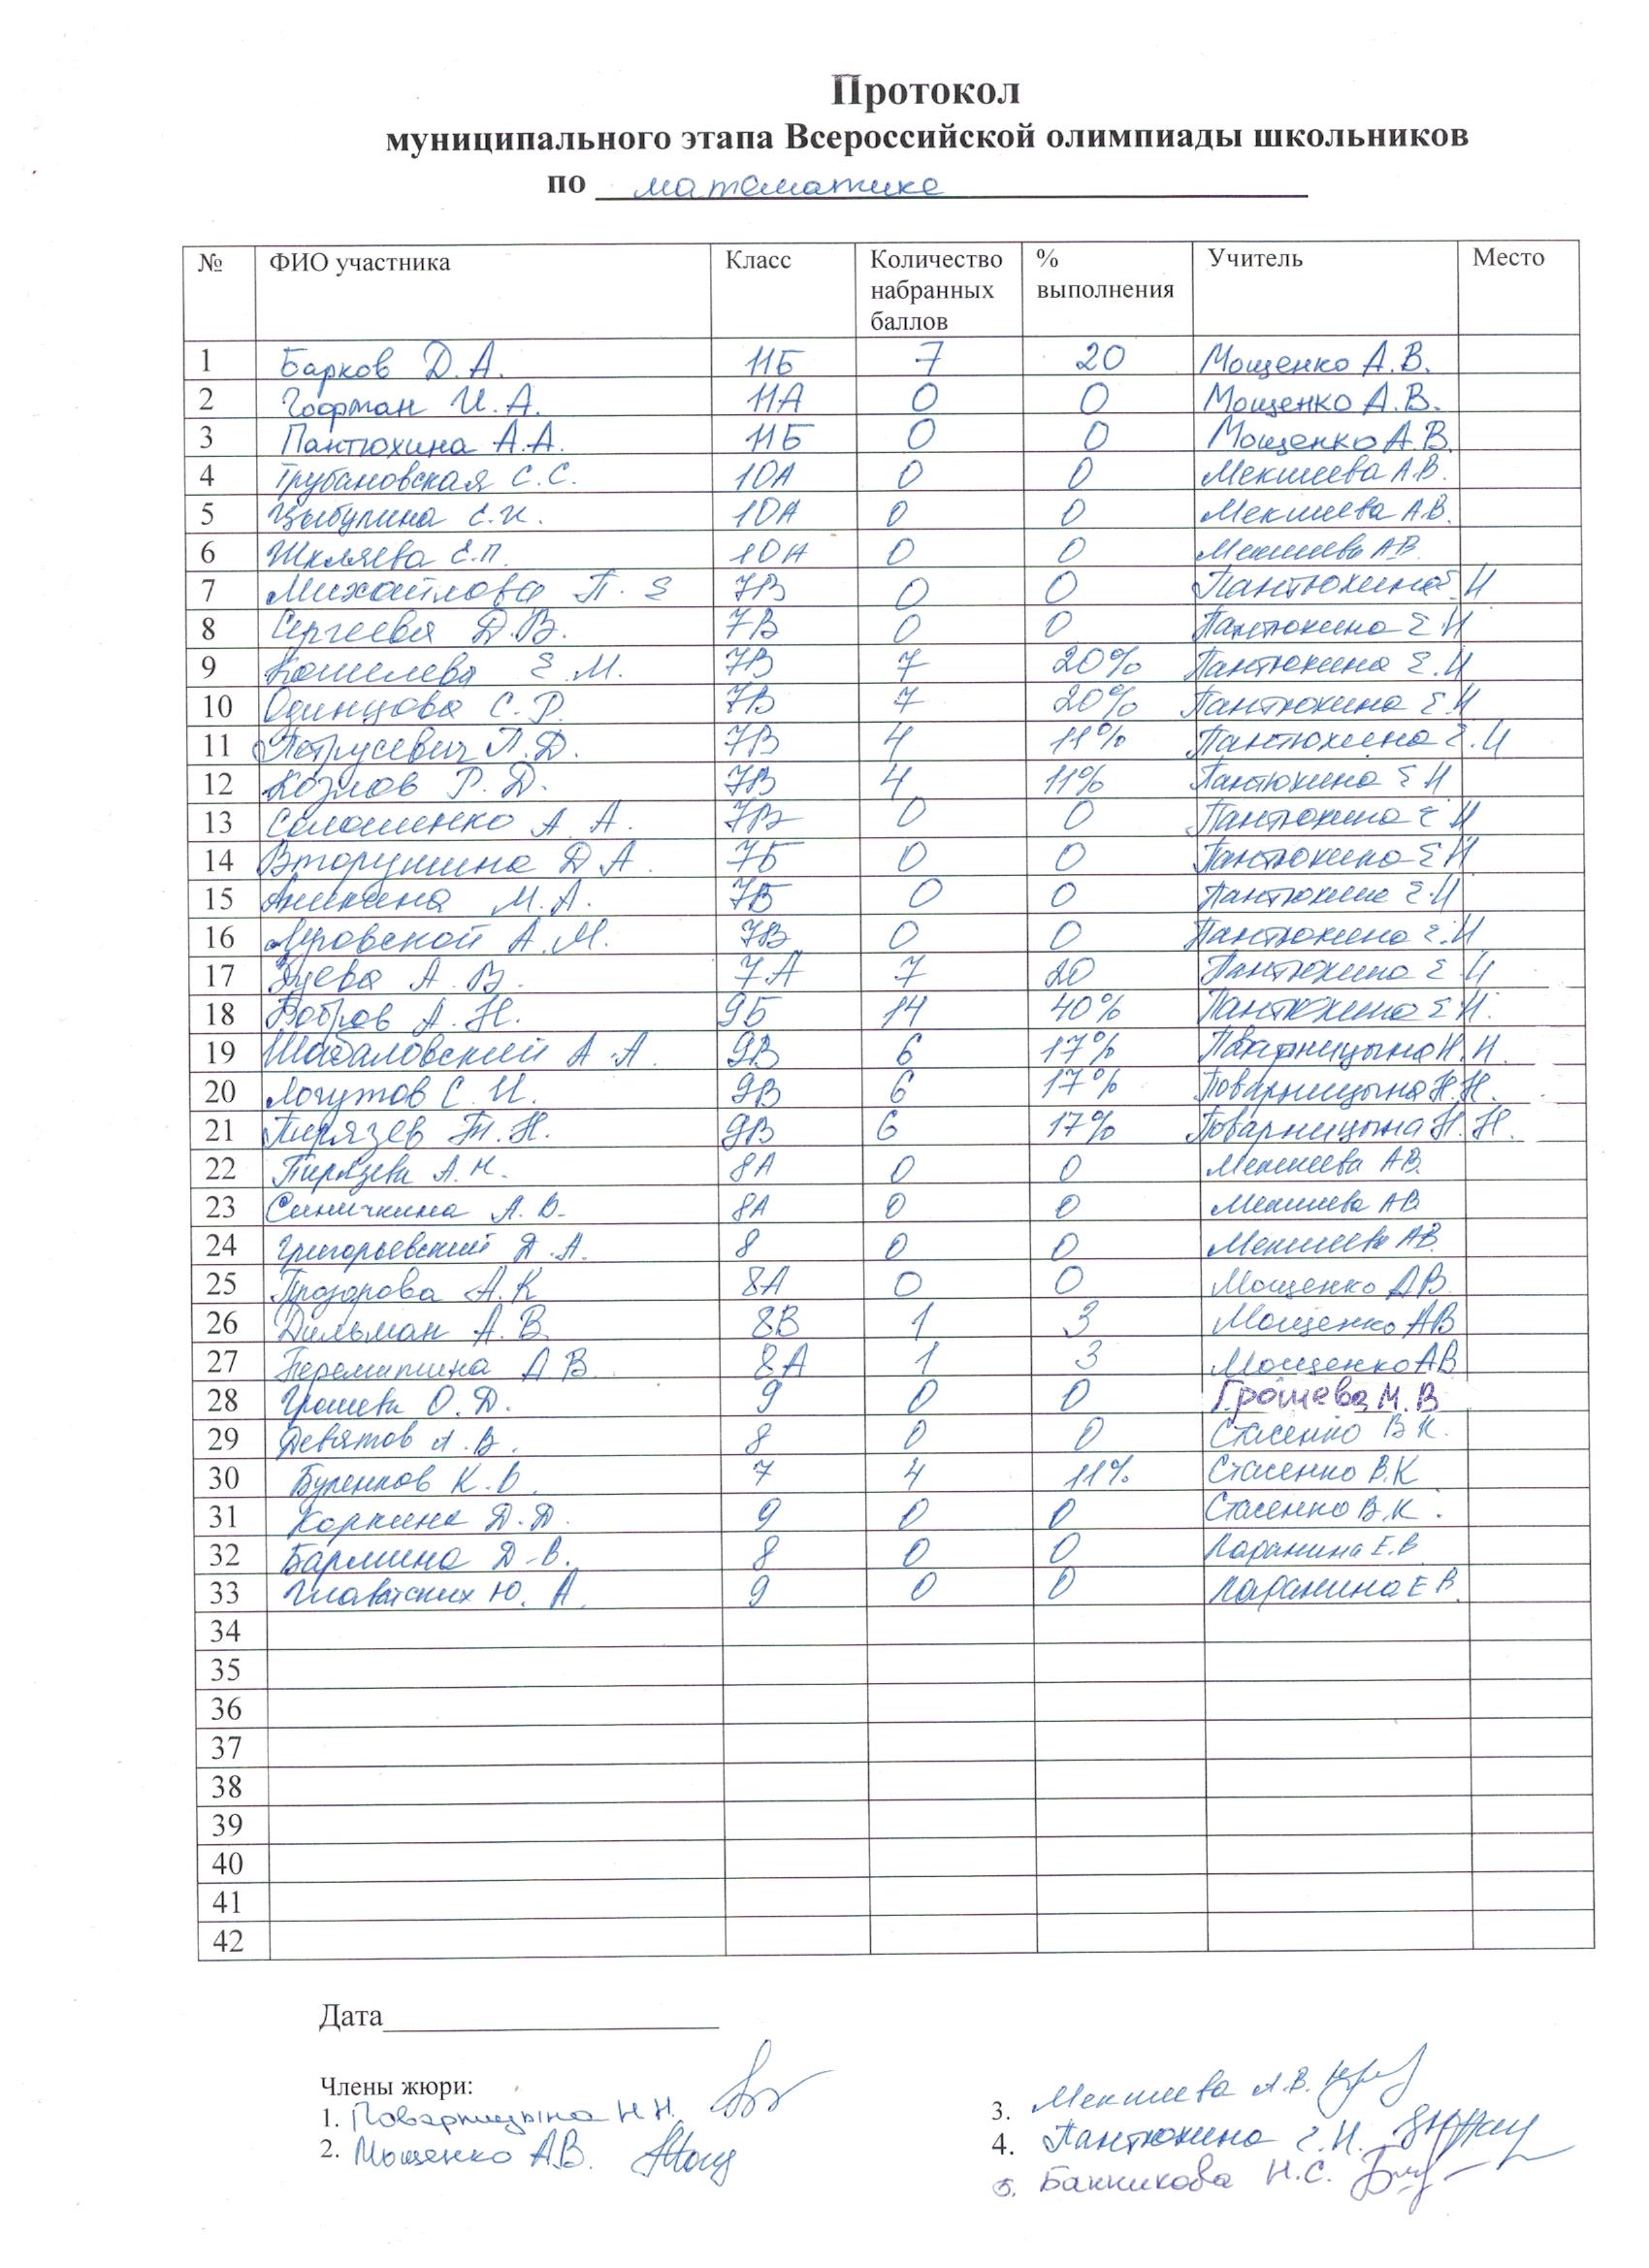 Протокол
муниципального этапа Всероссийской олимпиады школьников
по математике
№ ФИО участника Класс Количество набранных баллов % выполнения Учитель Место
1 Барков Д.А. 11Б 7 20 Мощенко А.В.
2 Гофман И.А. 11А 0 0 Мощенко А.В.
3 Пантюхина А.А. 11Б 0 0 Мощенко А.В.
4 Трубановская С.С. 10А 0 0 Мекшеева А.В.
5 Цыбулина Е.К. 10А 0 0 Мекшеева А.В.
6 Шкляева Е.П. 10А 0 0 Мекшеева АВ.
7 Михайлова П. Е 7В 0 0 Пантюхина Е.И
8 Сергеева Д.В. 7В 0 0 Пантюхина Е.И
9 Кошелева Е.М. 7В 7 20% Пантюхина Е.И
10 Одинцова С.Р. 7В 7 20% Пантюхина Е.И
11 Петрусевич П.Д. 7В 4 11% Пантюхина Е.И
12 Козлов Р.Д. 7В 4 11% Пантюхина Е И
13 Соломенко А А. 7В 0 0 Пантюхина Е И
14 Вторушина Д А. 7Б 0 0 Пантюхина Е И
15 Аникина М.А. 7Б 0 0 Пантюхина Е.И
16 А.М. 7В 0 0 Пантюхина Е.И
17 Зуева А.В. 7А 7 20 Пантюхина Е.И
18 Бобров А.Н. 9Б 14 40% Пантюхина Е.И.
19 Шабаловский А.А. 9В 6 17% Поварницына Н.Н.
20 Логутов С.И. 9В 6 17% Поварницына Н.Н.
21 Пирязев Т.Н. 9В 6 17% Поварницына Н.Н.
22 Пирязева А.Н. 8А 0 0 Мекшеева АВ.
23 Синичкина А.В. 8А 0 0 Мекшеева АВ
24 Григорьевский Д.А. 8 0 0 Мекшеева АВ.
25 Прозорова А.К 8А 0 0 Мощенко АВ.
26 Дильман А.В. 8В 1 3 Мощенко АВ
27 Перемитина А В. 8А 1 3 Мощенко АВ
28 Грошева О.Д. 9 0 0 Грошева М.В
29 Девятов А.В. 8 0 0 Стасенко В К.
30 Буренков К.В. 7 4 11% Стасенко В.К
31 Коркина Д.Д. 9 0 0 Стасенко В.К.
32 Бармина Д.В. 8 0 0 Ларанина Е.В
33 Главатских Ю.А. 9 0 0 Ларанина Е В.
34
35
36
37
38
39
40
41
42
Дата
Члены жюри:
1. Поварницына Н Н.
2. Мощенко А.В.
3. Мекшеева А.В.
4. Пантюхина Е.И.
5. Банникова Н.С.